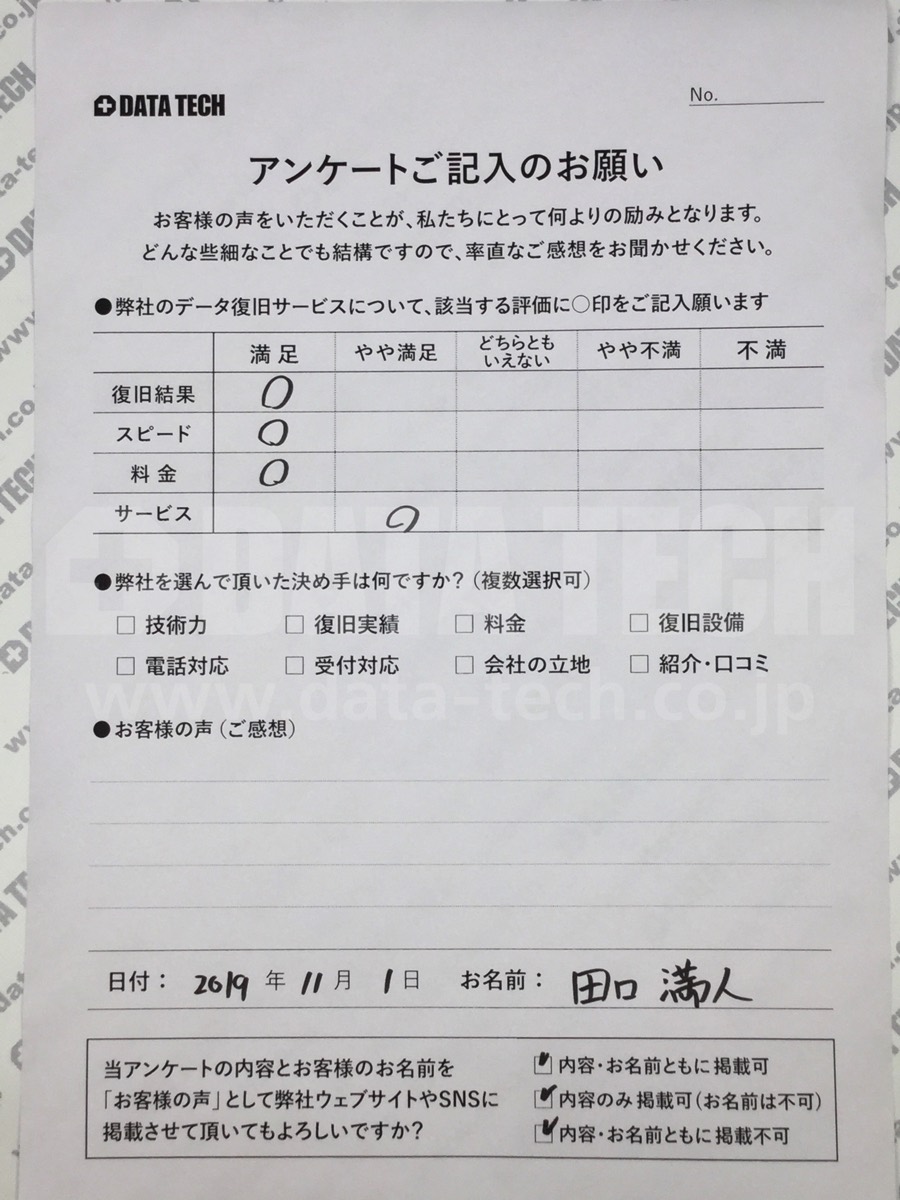 DATA TECH
No.
アンケートご記入のお願い
お客様の声をいただくことが、私たちにとって何よりの励みとなります。
どんな些細なことでも結構ですので、率直なご感想をお聞かせください。
●弊社のデータ復旧サービスについて、該当する評価に○印をご記入願います
満足 やや満足 どちらとも いえない やや不満 不満
復旧結果 ○
スピード ○
料金 ○
サービス ○
●弊社を選んで頂いた決め手は何ですか？（複数選択可）
□ 技術力 □ 復旧実績 □ 料金 □ 復旧設備
□ 電話対応 □ 受付対応 □ 会社の立地 □ 紹介・口コミ
DATA TECH
www.data-tech.co.jp
●お客様の声（ご感想）
日付： 2019 年 11 月 1 日 お名前： 田口 満人
当アンケートの内容とお客様のお名前を
「お客様の声」として弊社ウェブサイトやSNSに
掲載させて頂いてもよろしいですか？
☑ 内容・お名前ともに掲載可
☑ 内容のみ掲載可（お名前は不可）
☑ 内容・お名前ともに掲載不可